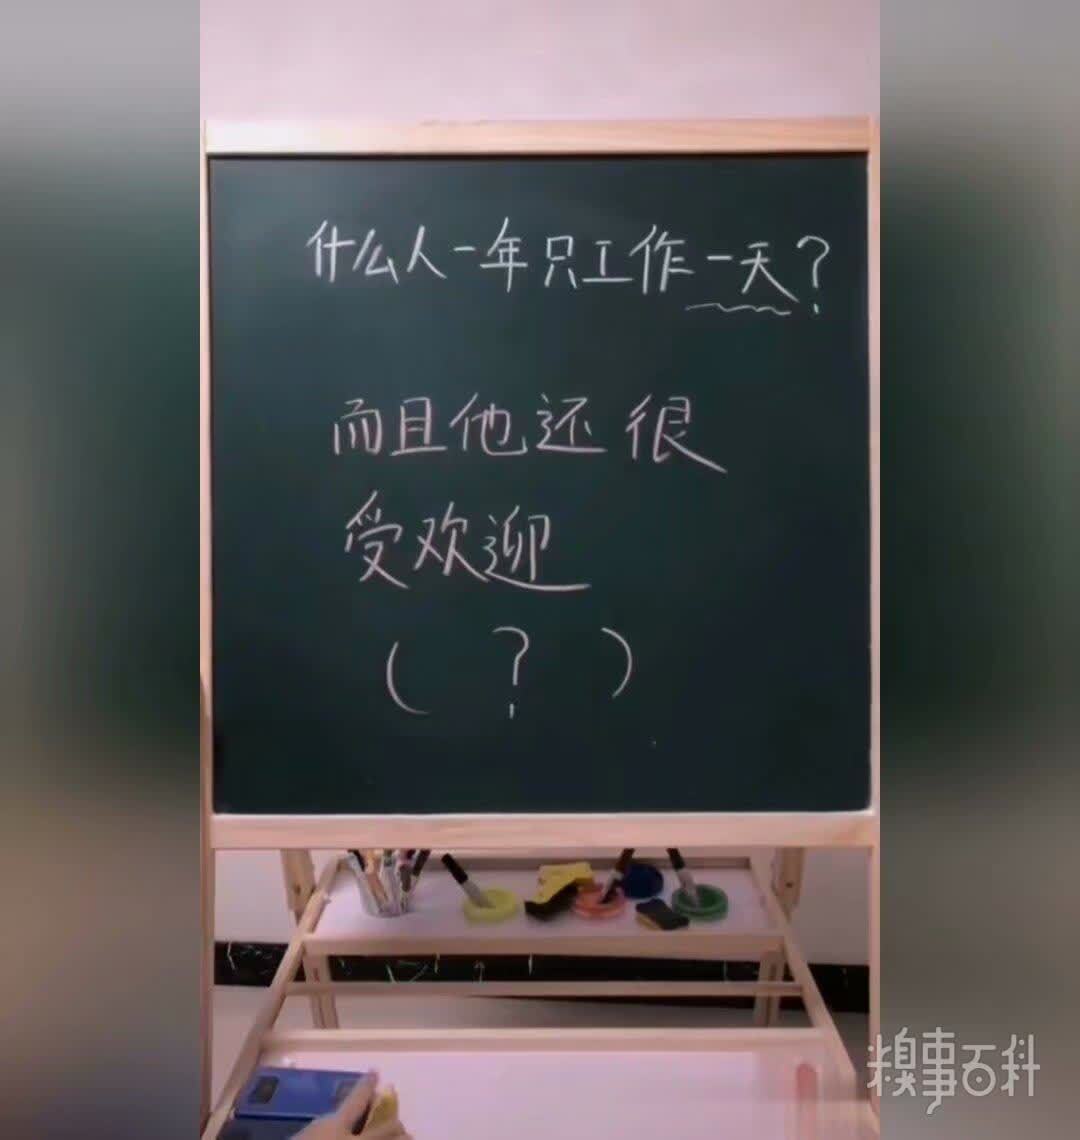 什么人一年只工作一天?
而且他还很
受欢迎
( ? )
糗事百科